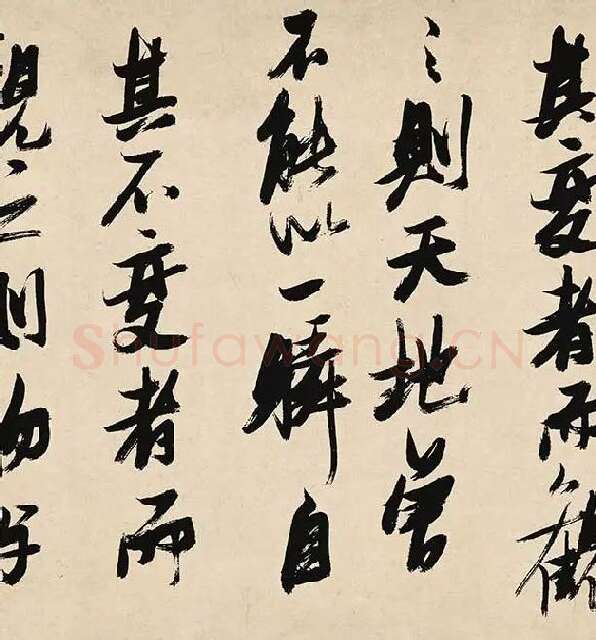 其變者而觀
之則天地曾
不能以一瞬自
其不變者而
觀之則物與
Shufawang.CN